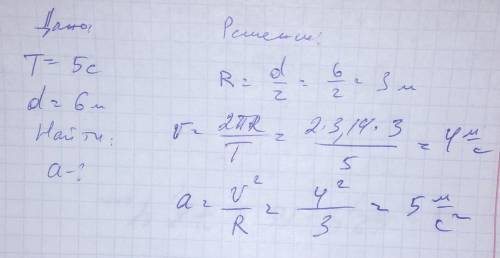 Дано:
T = 5с
d = 6м
Найти:
a - ?
Решение:
R = d/2 = 6/2 = 3 м
v = 2πR/T = 2·3,14·3/5 = 4 м/с
a = v²/R = 4²/3 = 5 м/с²